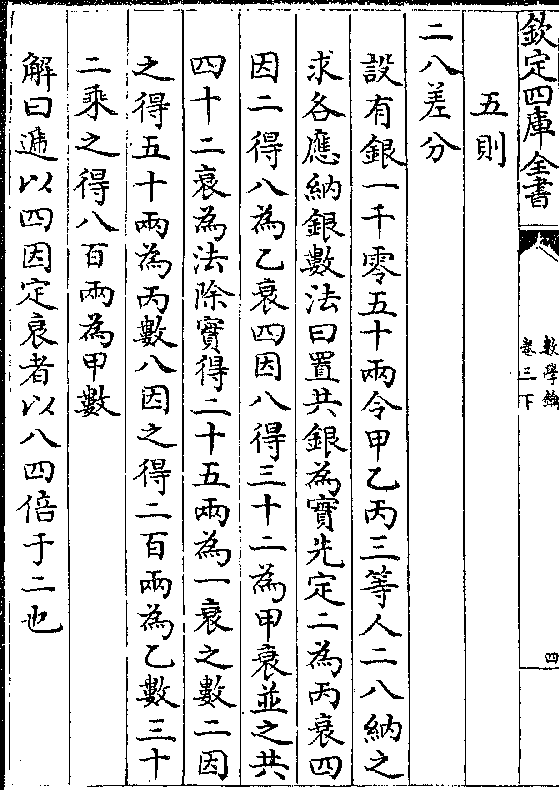 欽定四庫全書
數學鑰
卷三下
四
五則
二八差分
設有銀一千零五十兩令甲乙丙三等人二八納之
求各應納銀數法曰置共銀為實先定二為丙衰四
因二得八為乙衰四因八得三十二為甲衰並之共
四十二衰為法除實得二十五兩為一衰之數二因
之得五十兩為丙數八因之得二百兩為乙數三十
二乘之得八百兩為甲數
解曰遞以四因定衰者以八四倍于二也